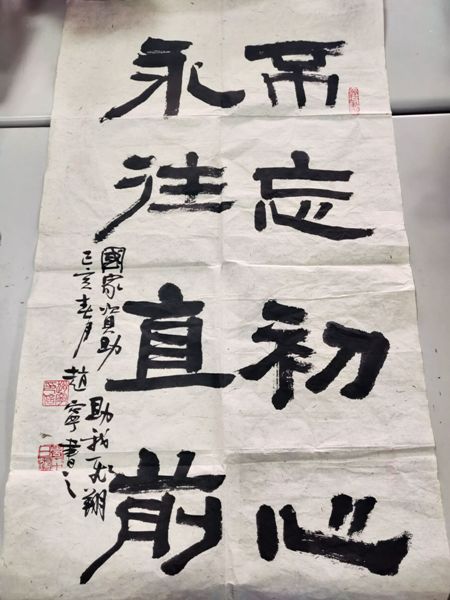 不忘初心
永往直前
國家資助 助我飛翔
己亥春月 趙寧書之